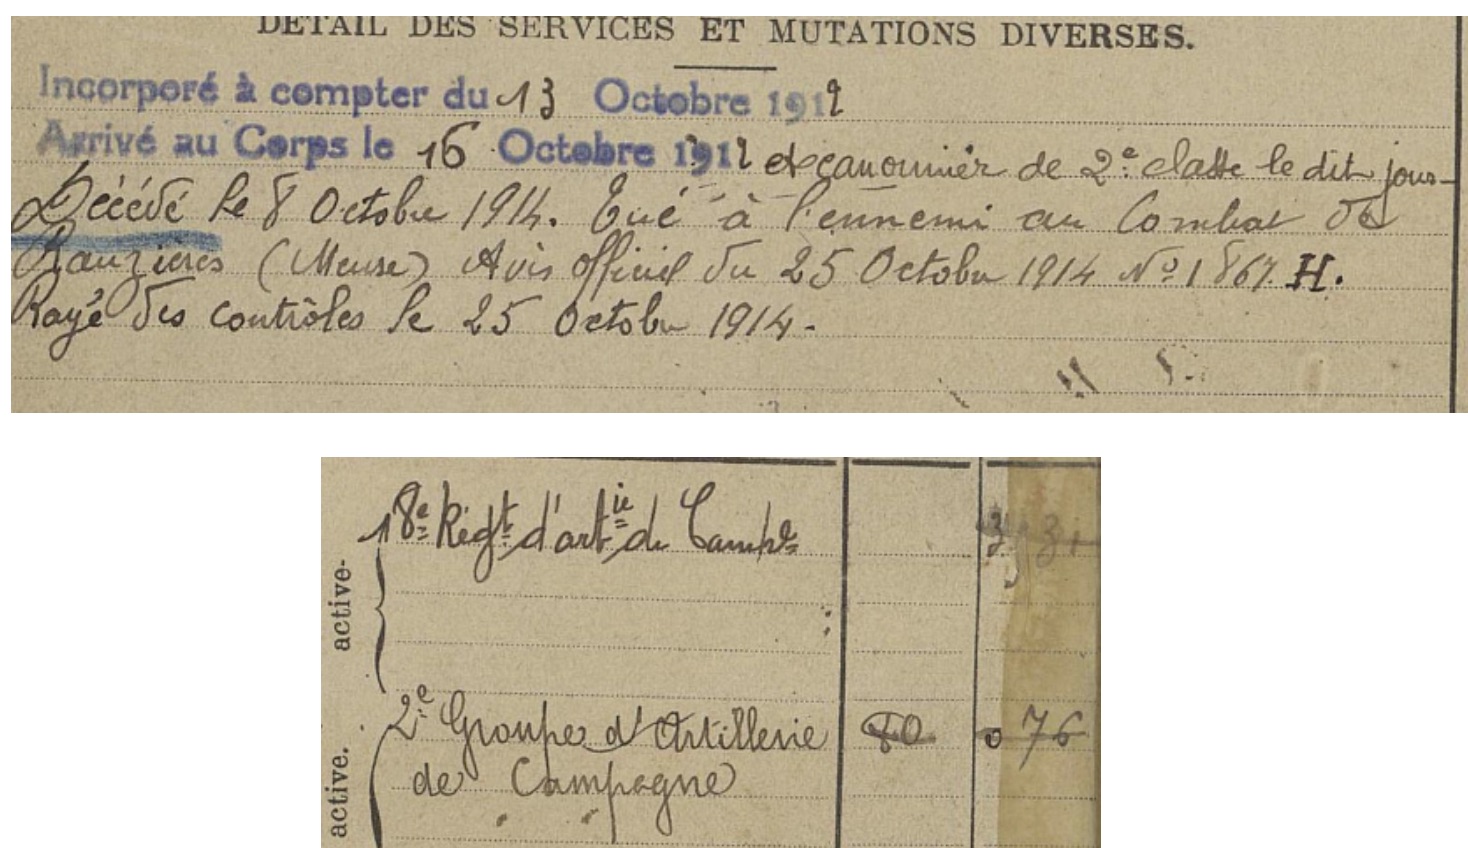 DÉTAIL DES SERVICES ET MUTATIONS DIVERSES.
Incorporé à compter du 13 Octobre 1912
Arrivé au Corps le 16 Octobre 1912 et canonnier de 2e classe le dit jour
Décédé le 8 Octobre 1914. Tué à l'ennemi au Combat de
Ranzières (Meuse) Avis officiel du 25 Octobre 1914 No 1867. H.
Rayé des contrôles le 25 Octobre 1914.
active
18e Régt d'artie de Campe
active.
2e Groupe d'Artillerie 80 0 76
de Campagne